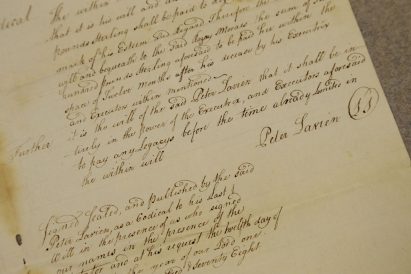 the within
Codical that it is his will and
pounds Sterling shall be paid to
mark of his Esteem and Regard Therefore the
will and bequeath to the said Moses the sum of
hundred pounds Sterling aforesaid to be paid him within the
space of Twelve Months after his decease by his Executrix
and Executors within mentioned
Further it is the will of the said Peter Lavien that it shall be in
tirely in the power of the Executrix and Executors aforesaid
to pay any Legacys before the time already limited in
the within will
Peter Lavien
Signed Sealed, and Published by the said
Peter Lavien, as a Codical to his Last
Will in the presence of us who signed
our names in the presence of the
and at his request the twelfth day of
the year of our Lord one
and Seventy Eight